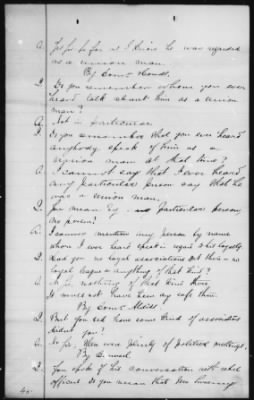 A. Yes sir so far as I know he was regarded
as a union man.
By Com
Q. Do you remember whom you ever
heard talk about him as a union
man?
A. Not in particular.
Q. Do you remember that you ever heard
anybody speak of him as a
union man at that time?
A. I cannot say that I ever heard
any particular person say that he
was a union man.
Q. You mean by no particular person,
no person?
A. I cannot mention any person by name
whom I ever heard speak in regard to his loyalty
Q. Had you no loyal associations out there - no
loyal league or anything of that kind?
A. No sir, nothing of that kind there,
It would not have been safe then.
By Com
Q. But you did have some kind of associations
didn't you?
A. No sir, there was plenty of political meetings.
By
Q. You spoke of his conversation with rebel
officers. Do you mean that Mr